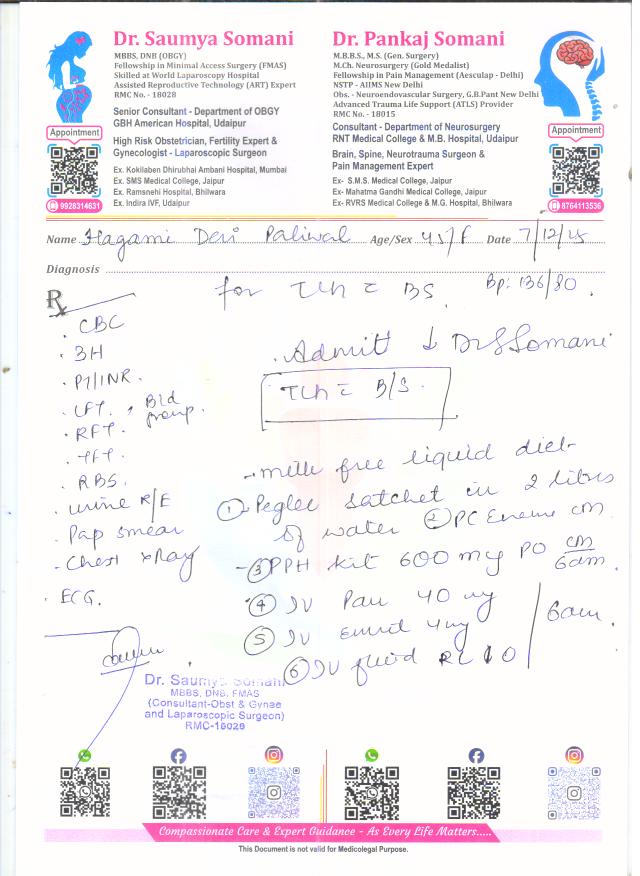 Dr. Saumya Somani
MBBS, DNB (OBGY)
Fellowship in Minimal Access Surgery (FMAS)
Skilled at World Laparoscopy Hospital
Assisted Reproductive Technology (ART) Expert
RMC No. - 18028
Senior Consultant - Department of OBGY
GBH American Hospital, Udaipur
High Risk Obstetrician, Fertility Expert &
Gynecologist - Laparoscopic Surgeon
Ex. Kokilaben Dhirubhai Ambani Hospital, Mumbai
Ex. SMS Medical College, Jaipur
Ex. Ramsnehi Hospital, Bhilwara
Ex. Indira IVF, Udaipur
Appointment
9928314631
Dr. Pankaj Somani
M.B.B.S., M.S. (Gen. Surgery)
M.Ch. Neurosurgery (Gold Medalist)
Fellowship in Pain Management (Aesculap - Delhi)
NSTP - AIIMS New Delhi
Obs. - Neuroendovascular Surgery, G.B.Pant New Delhi
Advanced Trauma Life Support (ATLS) Provider
RMC No. - 18015
Consultant - Department of Neurosurgery
RNT Medical College & M.B. Hospital, Udaipur
Brain, Spine, Neurotrauma Surgeon &
Pain Management Expert
Ex- S.M.S. Medical College, Jaipur
Ex- Mahatma Gandhi Medical College, Jaipur
Ex- RVRS Medical College & M.G. Hospital, Bhilwara
Appointment
8764113536
Name Hagami Devi Paliwal Age/Sex 45/F Date 7/12/25
Diagnosis
Rx for TLH c BS. Bp: 136/80.
. CBC
. 3H
. PT/INR.
. LFT. , Bld group.
. RFT.
. TFT.
. RBS.
. urine R/E
. Pap smear
. Chest xRay
. ECG.
. Admitt ↓ Dr S Somani
TLH c B/S.
- milk free liquid diet
① Peglec satchet in 2 litres
of water ② PC Enema cm
- ③ PPH kit 600 mg PO cm/6am.
④ IV Pan 40 mg
⑤ IV emit 4mg 6am.
⑥ IV fluid RL
Dr. Saumya Somani
MBBS, DNB, FMAS
(Consultant-Obst & Gynae
and Laparoscopic Surgeon)
RMC-18028
Compassionate Care & Expert Guidance - As Every Life Matters.....
This Document is not valid for Medicolegal Purpose.